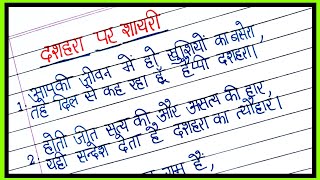 दशहरा पर शायरी
1. आपकी जीवन में हो खुशियों का बसेरा,
तहे दिल से कह रहा हूँ हैप्पी दशहरा।
होती जीत सत्य की और असत्य की हार,
2. यही सन्देश देता है दशहरा का त्यौहार।